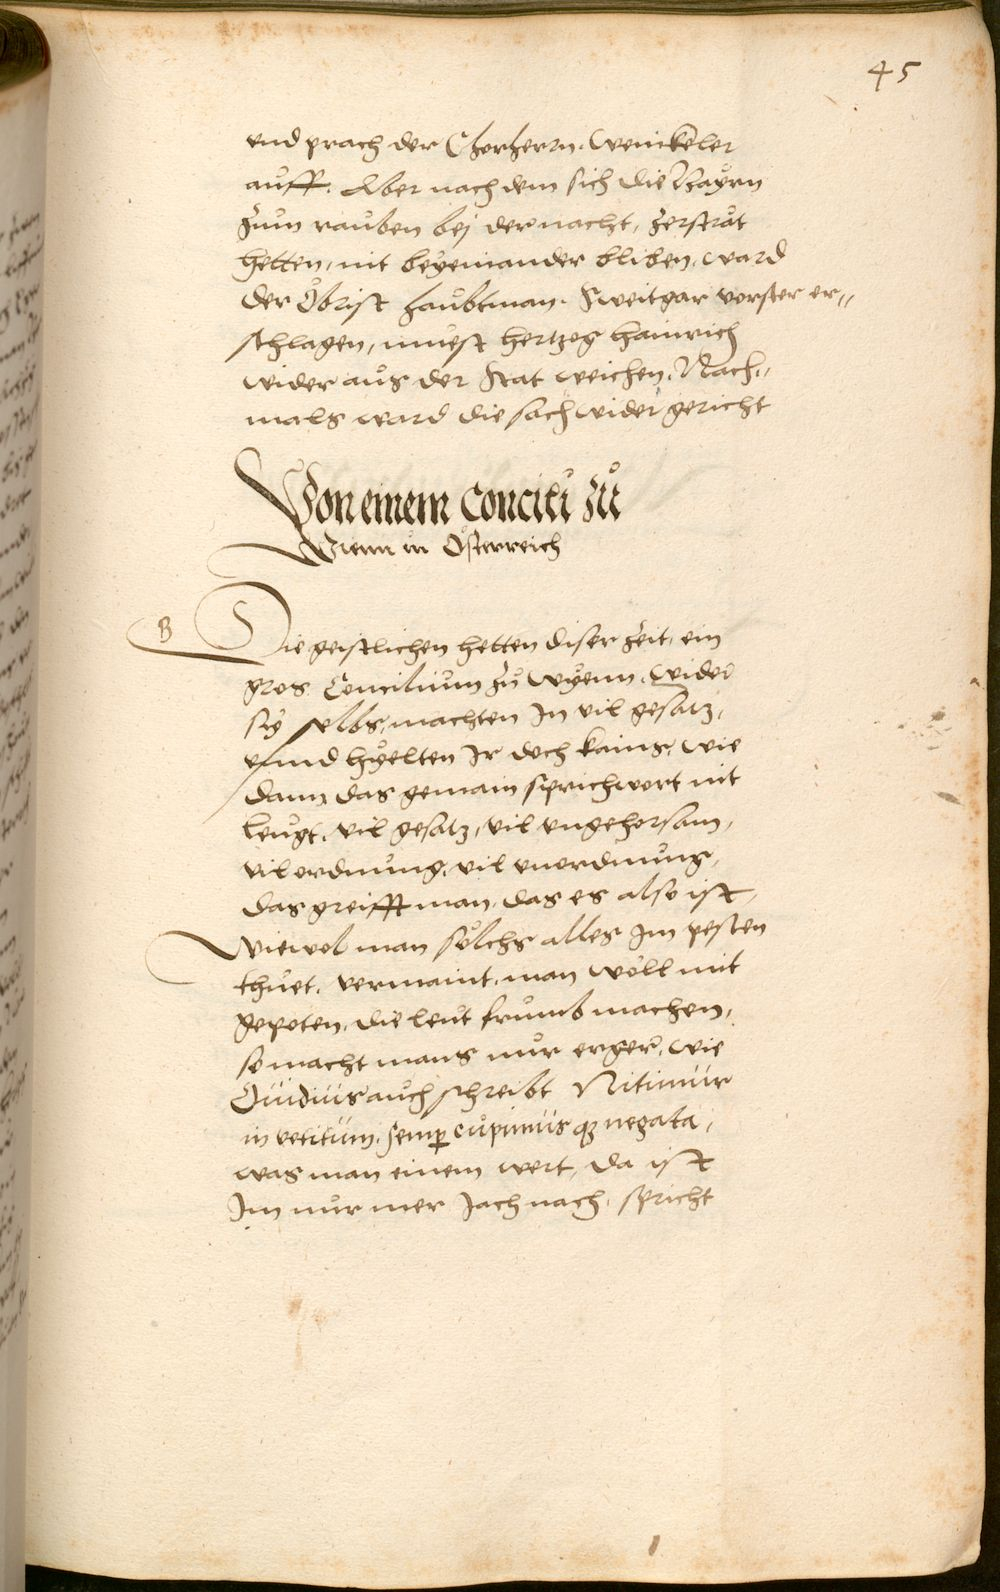 45
vnd prach der Chorherrn. Weinkeler
auff. Aber nach dem sich die Bayrn
zum rauben bej der nacht, zerstrat
hetten, nit beyeinander bliben, ward
der Obrist haubtman. Sweitgar vorster er=
schlagen, muest hertzog hainrich
wider aus der stat weichen. Nach=
mals ward die sach wider gericht
Von einem Concili zu
Wienn in Österreich
B
Die geistlichen hetten diser zeit, ein
gros Concilium zu Wyenn. Wider
sy selbs, machten In vil gesatz,
vnnd hyelten Ir doch kains, wie
dann das gemain sprichwort nit
leugt. vil gesatz, vil vngehorsam,
vil ordnung, vil vnordnung,
das greifft man, das es also ist,
Wiewol man solchs alles Im pesten
thuet. vermaint, man wöll mit
gepoten, die leut frumb machen,
so macht mans nur erger, wie
Ouidius auch schreibt Nitimur
in vetitum, semper cupimusque negata,
was man einem wert, da ist
Im nur mer Jach nach, spricht